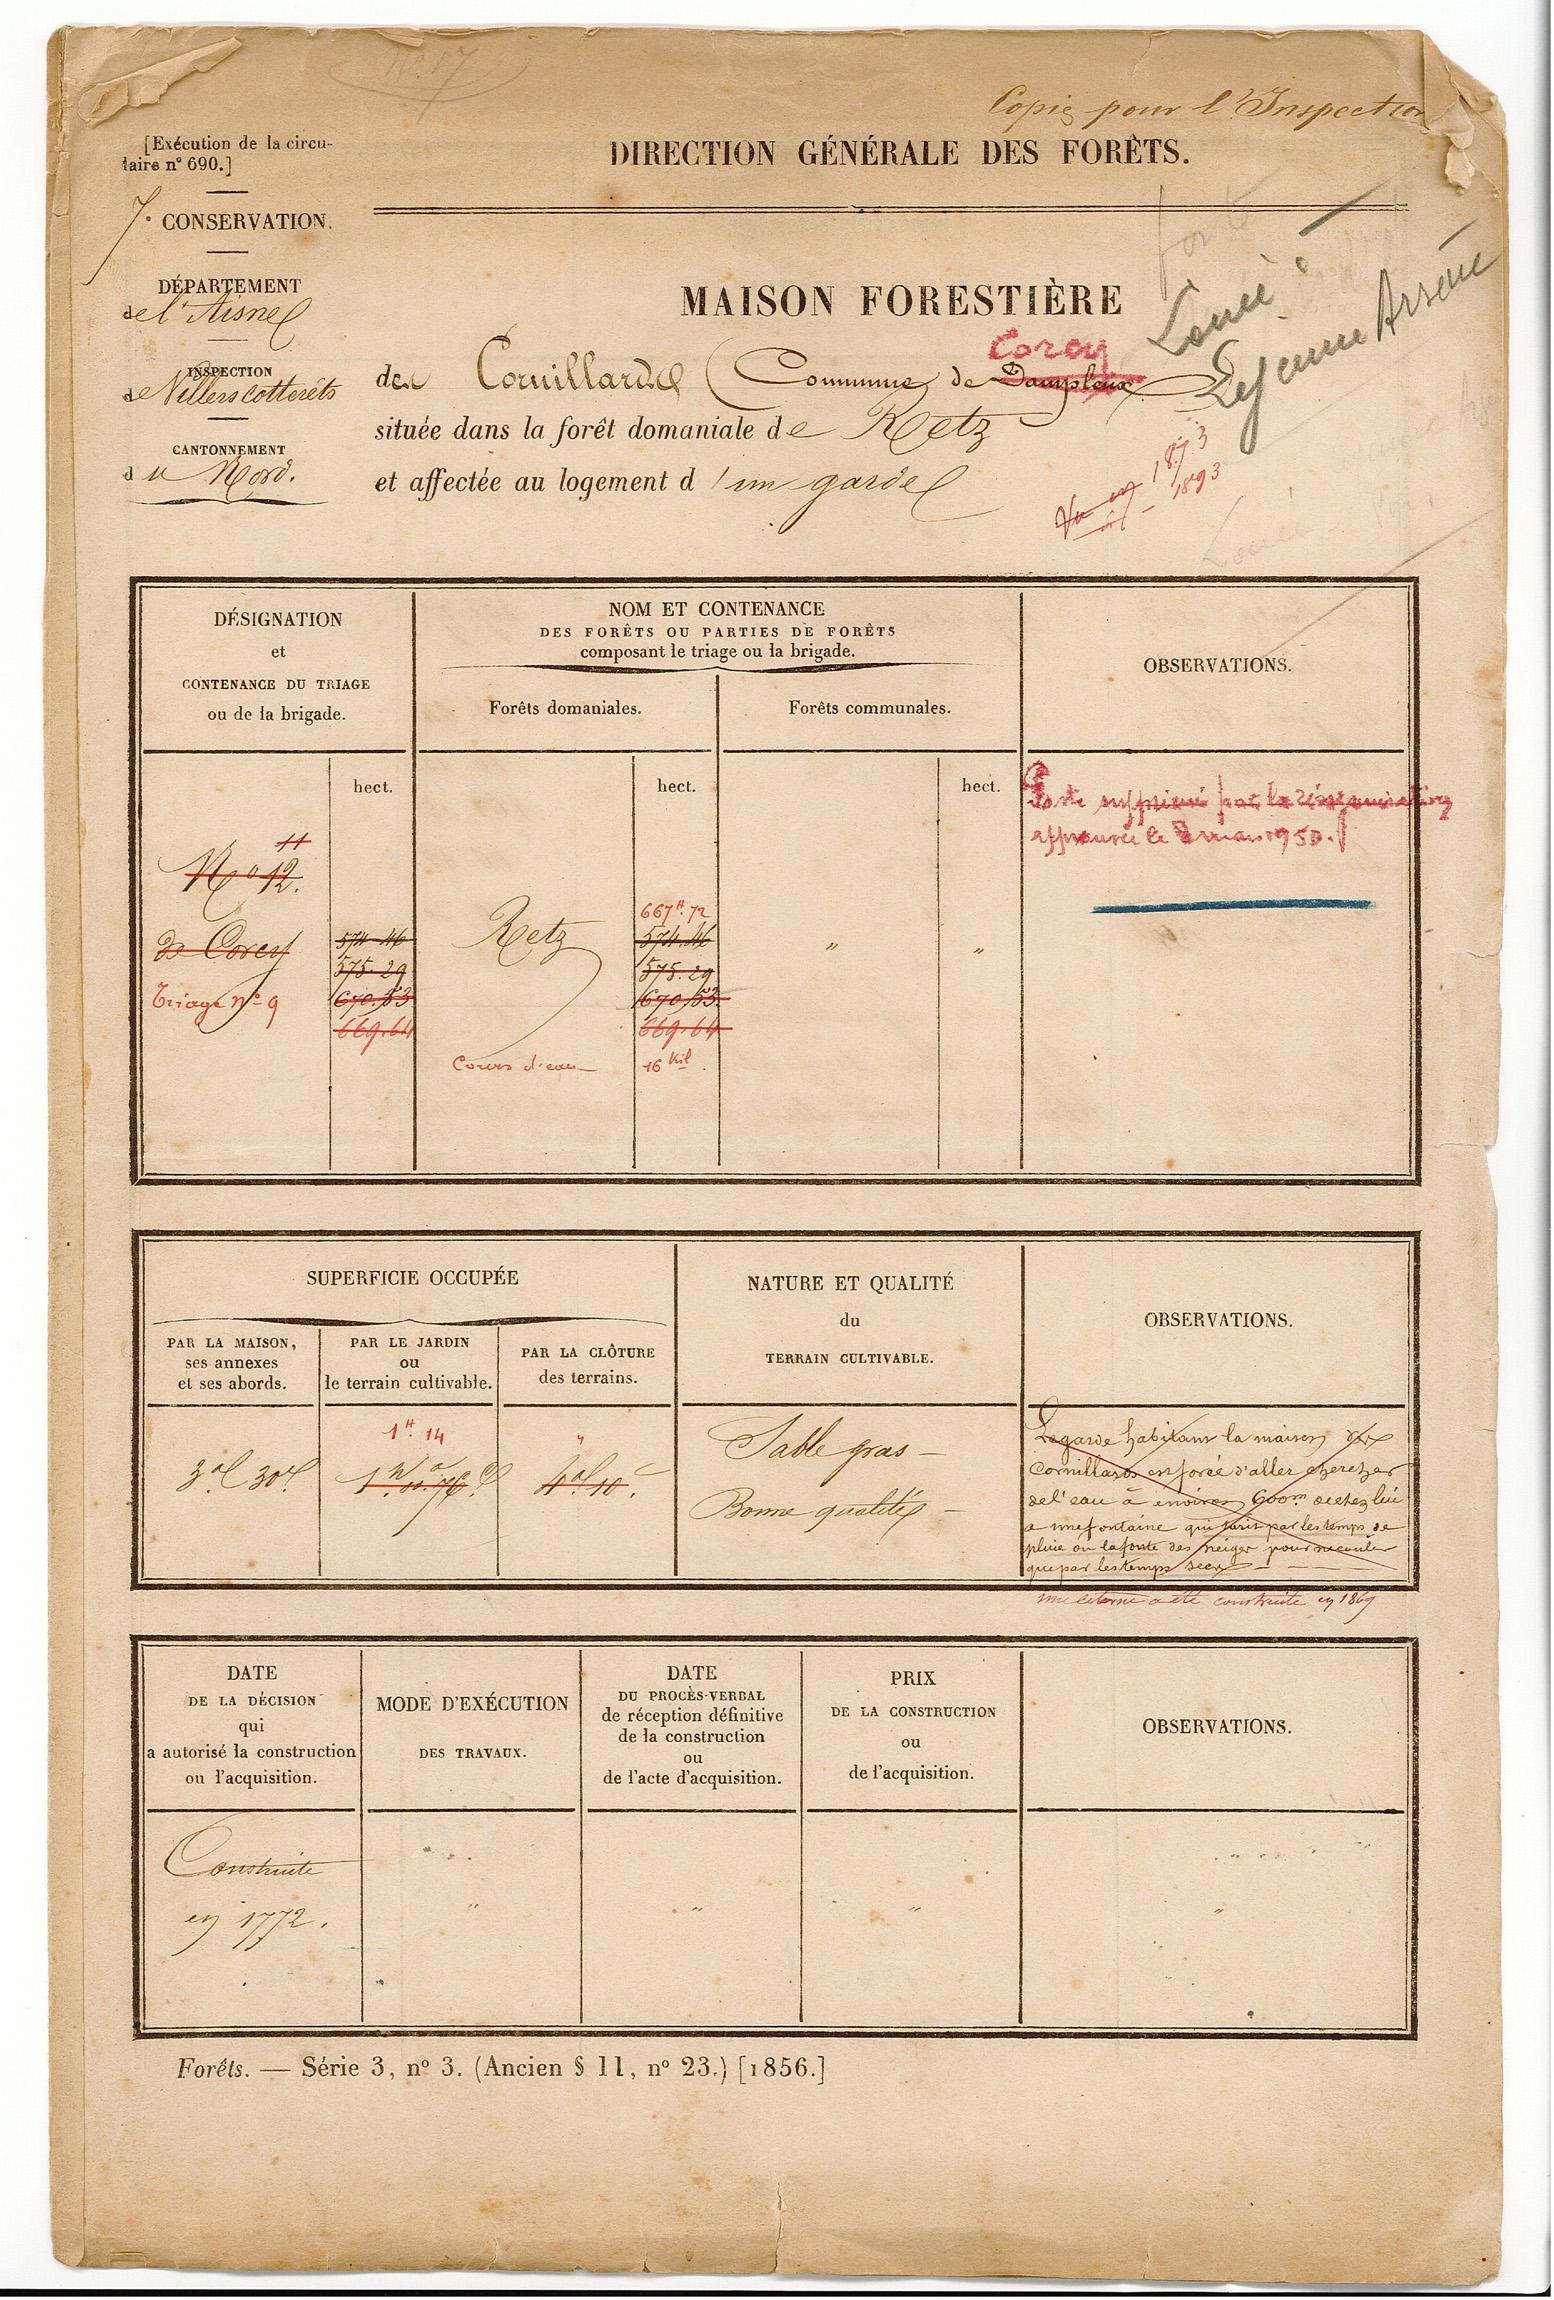 No 17
Copie pour l'Inspection
[Exécution de la circu-
laire n° 690.]
DIRECTION GÉNÉRALE DES FORÊTS.
7e CONSERVATION.
DÉPARTEMENT
de l'Aisne
INSPECTION
de Villers cotterêts
CANTONNEMENT
du Nord.
MAISON FORESTIÈRE
Corcy
des Cornillards (Commune de Dampleux)
située dans la forêt domaniale de Retz
et affectée au logement d'un garde
Loué
Lejeune Arsène
Vu en 1873
id – 1893
DÉSIGNATION
et
CONTENANCE DU TRIAGE
ou de la brigade.
NOM ET CONTENANCE
DES FORÊTS OU PARTIES DE FORÊTS
composant le triage ou la brigade.
Forêts domaniales.
Forêts communales.
OBSERVATIONS.
hect.
hect.
hect.
Poste supprimé par la réorganisation
approuvée le 8 mars 1950.
11
No 12.
667H.72
de Corcy 574-46 Retz 574.46 " "
575.29 575.29
Triage No 9 670.53 670.53
669.64 669.64
Cours d'eau 16 Kil.
SUPERFICIE OCCUPÉE
PAR LA MAISON,
ses annexes
et ses abords.
PAR LE JARDIN
ou
le terrain cultivable.
PAR LA CLÔTURE
des terrains.
NATURE ET QUALITÉ
du
TERRAIN CULTIVABLE.
OBSERVATIONS.
1H. 14 "
3a 30c 1h a 76c 4a 10c
Sable gras –
Bonne qualité –
Le garde habitant la maison des
Cornillards est forcé d'aller chercher
de l'eau à environ 600m de chez lui
a une fontaine qui tarit par les temps de
pluie ou la fonte des neiges pour ne couler
que par les temps secs
une citerne a été construite en 1869
DATE
DE LA DÉCISION
qui
a autorisé la construction
ou l'acquisition.
MODE D'EXÉCUTION
DES TRAVAUX.
DATE
DU PROCÈS-VERBAL
de réception définitive
de la construction
ou
de l'acte d'acquisition.
PRIX
DE LA CONSTRUCTION
ou
de l'acquisition.
OBSERVATIONS.
Construite
en 1772. " " " "
Forêts. — Série 3, n° 3. (Ancien § 11, n° 23.) [1856.]